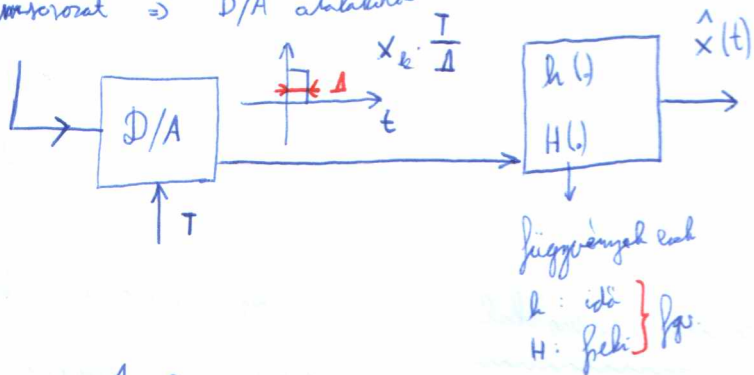 ⇒ D/A
D/A
T
Δ
t
x_k · T/Δ
h(.)
H(.)
x̂(t)
függvények csak
h : idő
H : freki } fgv.